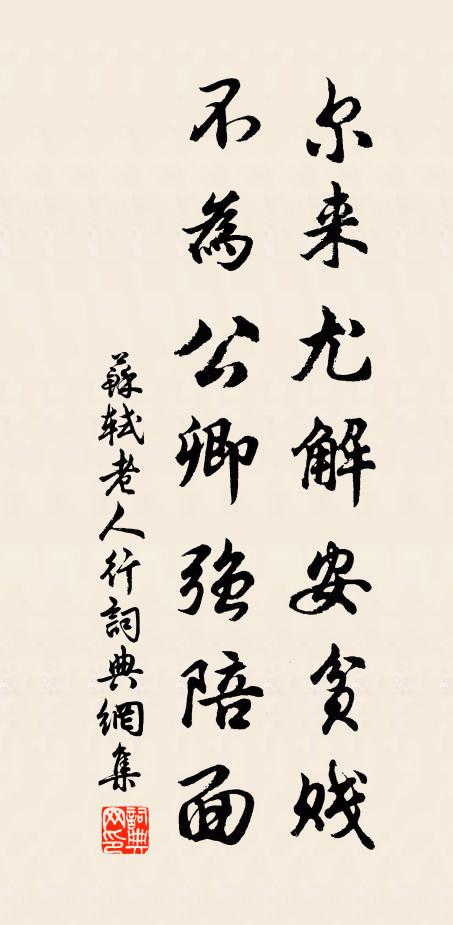 尔来尤解安贫贱
不為公卿強陪面
蘇軾老人行詞典網集
詞典网印